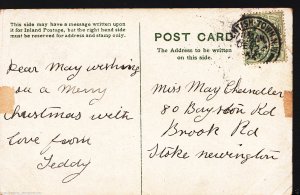 This side may have a message written upon
it for Inland Postage, but the right hand side
must be reserved for address and stamp only.
POST CARD
The Address to be written
on this side.
Dear May wishing
you a Merry
Christmas with
love from
Teddy
Miss May Chandler
80 Bayston Rd
Brook Rd
Stoke Newington